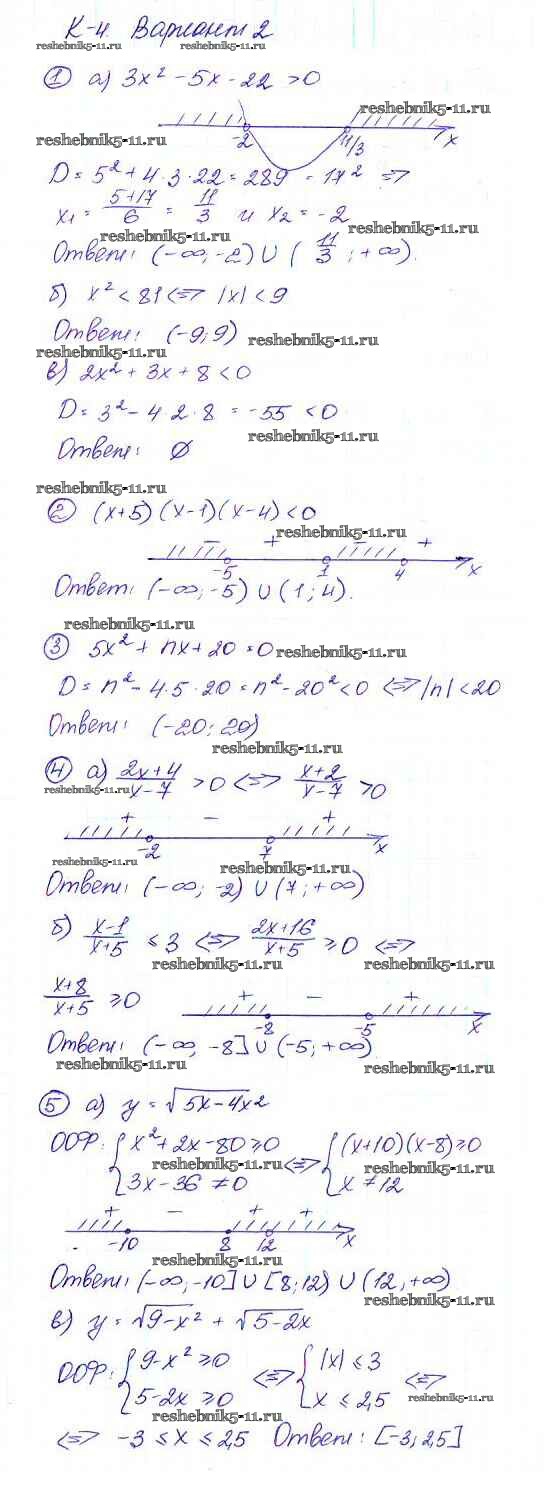 К-4. Вариант 2
reshebnik5-11.ru reshebnik5-11.ru
① а) 3x² - 5x - 22 > 0
reshebnik5-11.ru
reshebnik5-11.ru
-2 11/3 x
D = 5² + 4·3·22 = 289 = 17² ⇒
x₁ = (5+17)/6 = 11/3 и x₂ = -2
reshebnik5-11.ru reshebnik5-11.ru
Ответ: (-∞; -2) ∪ (11/3; +∞).
reshebnik5-11.ru
б) x² < 81 ⇔ |x| < 9
Ответ: (-9; 9) reshebnik5-11.ru
reshebnik5-11.ru
в) 2x² + 3x + 8 < 0
D = 3² - 4·2·8 = -55 < 0
reshebnik5-11.ru
Ответ: ∅
reshebnik5-11.ru
② (x+5)(x-1)(x-4) < 0
reshebnik5-11.ru
- + - +
-5 1 4 x
Ответ: (-∞; -5) ∪ (1; 4).
reshebnik5-11.ru
③ 5x² + nx + 20 = 0 reshebnik5-11.ru
D = n² - 4·5·20 = n² - 20² < 0 ⇔ |n| < 20
Ответ: (-20; 20)
reshebnik5-11.ru
④ а) (2x+4)/(x-7) > 0 ⇔ (x+2)/(x-7) > 0
reshebnik5-11.ru reshebnik5-11.ru
+ - +
-2 7 x
reshebnik5-11.ru reshebnik5-11.ru
Ответ: (-∞; -2) ∪ (7; +∞)
б) (x-1)/(x+5) ≤ 3 ⇔ (2x+16)/(x+5) ≥ 0 ⇔
reshebnik5-11.ru reshebnik5-11.ru
(x+8)/(x+5) ≥ 0
+ - +
-8 -5 x
Ответ: (-∞, -8] ∪ (-5; +∞)
reshebnik5-11.ru reshebnik5-11.ru
⑤ а) y = √(5x-4x²)
ООФ: { x² + 2x - 80 ≥ 0 ⇔ { (x+10)(x-8) ≥ 0
3x - 36 ≠ 0 x ≠ 12
reshebnik5-11.ru reshebnik5-11.ru
+ - + +
-10 8 12 x
reshebnik5-11.ru
Ответ: (-∞, -10] ∪ [8; 12) ∪ (12, +∞)
reshebnik5-11.ru
в) y = √(9-x²) + √(5-2x)
ООФ: { 9-x² ≥ 0 ⇔ { |x| ≤ 3 ⇔
5-2x ≥ 0 x ≤ 2,5
reshebnik5-11.ru reshebnik5-11.ru
reshebnik5-11.ru
⇔ -3 ≤ x ≤ 2,5 Ответ: [-3; 2,5]